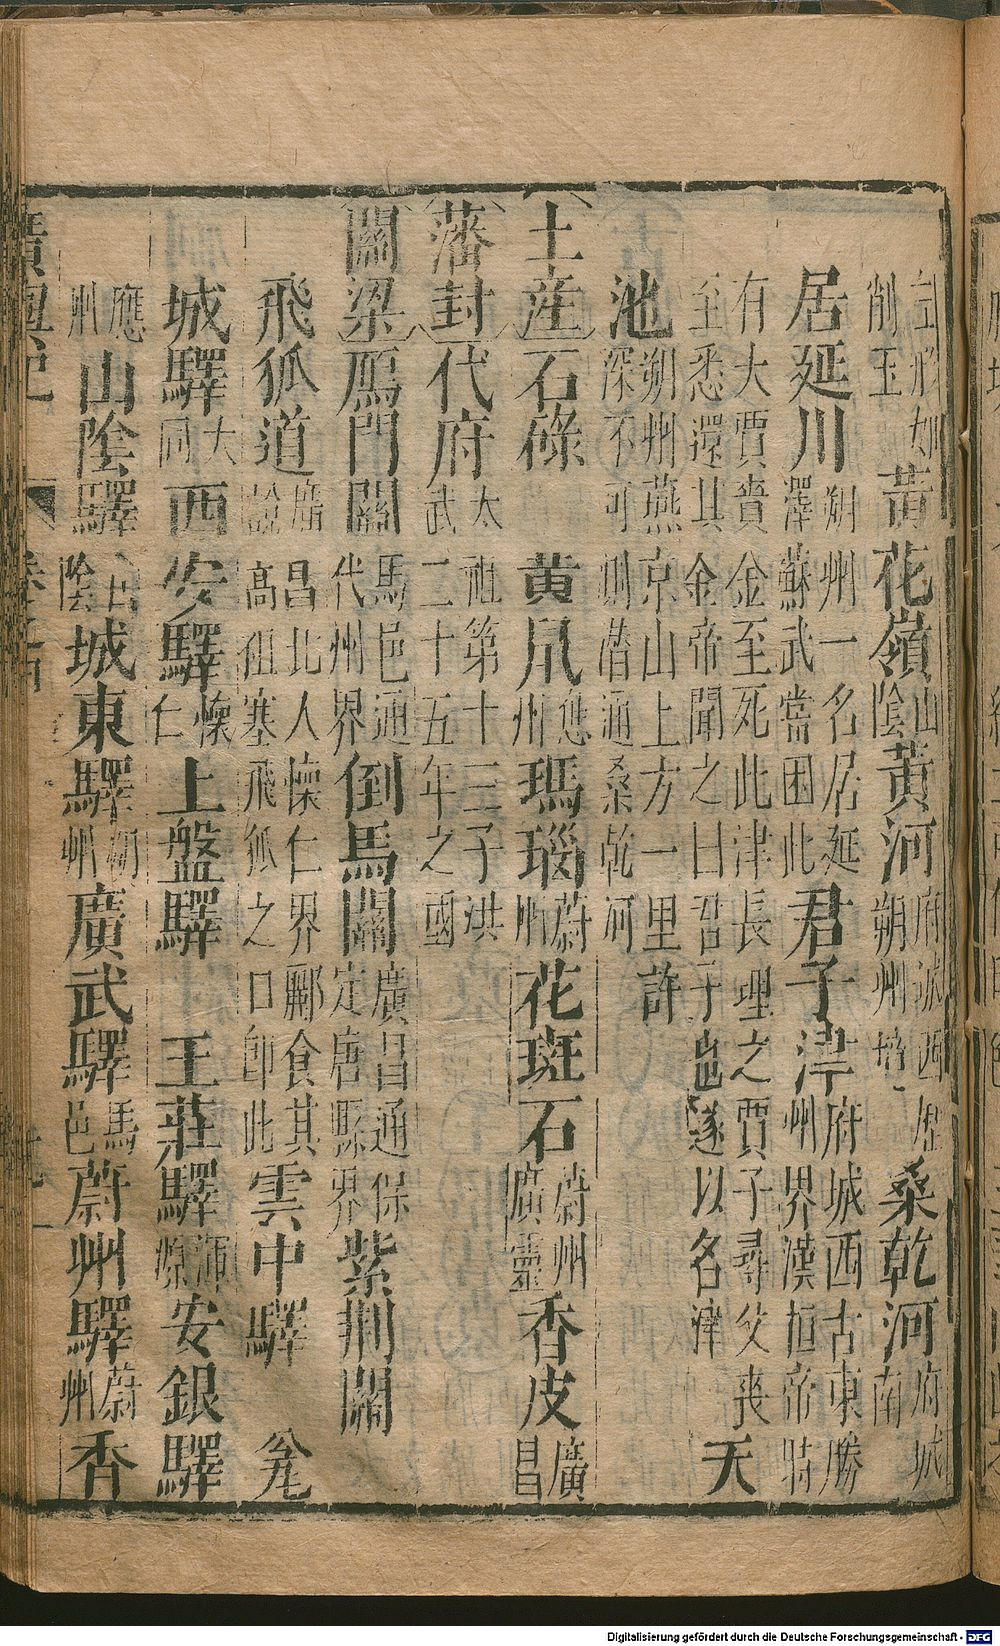 形如削玉黃花嶺山陰黃河府城西歷朔州境桑乾河府城南
居延川朔州一名居延澤蘇武嘗困此君子津府城西古東勝州界漢桓帝時
有大賈賫金至死此津長理之賈子尋父喪至悉還其金帝聞之曰君子也遂以名津天
池朔州燕京山上方一里許深不可測潛通桑乾河
土產石碌黃鼠應州瑪瑙蔚州花斑石蔚州廣靈香皮廣昌
藩封代府太祖第十三子洪武二十五年之國
關梁鴈門關馬邑通代州界倒馬關廣昌通保定唐縣界紫荆關
飛狐道廣昌北入懷仁界酈食其說高祖塞飛狐之口卽此雲中驛瓮
城驛大同西安驛懷仁上盤驛王莊驛渾源安銀驛
應州山陰驛山陰城東驛朔州廣武驛馬邑蔚州驛蔚州香
廣輿記
Digitalisierung gefördert durch die Deutsche Forschungsgemeinschaft - DFG